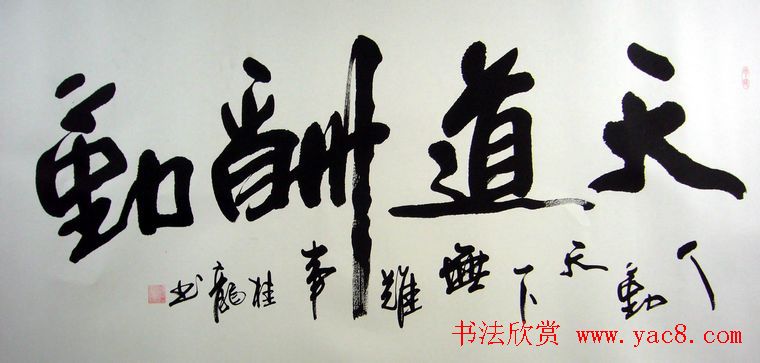 天道酬勤
人勤天下無难事 桂龍书
书法欣赏 www.yac8.com